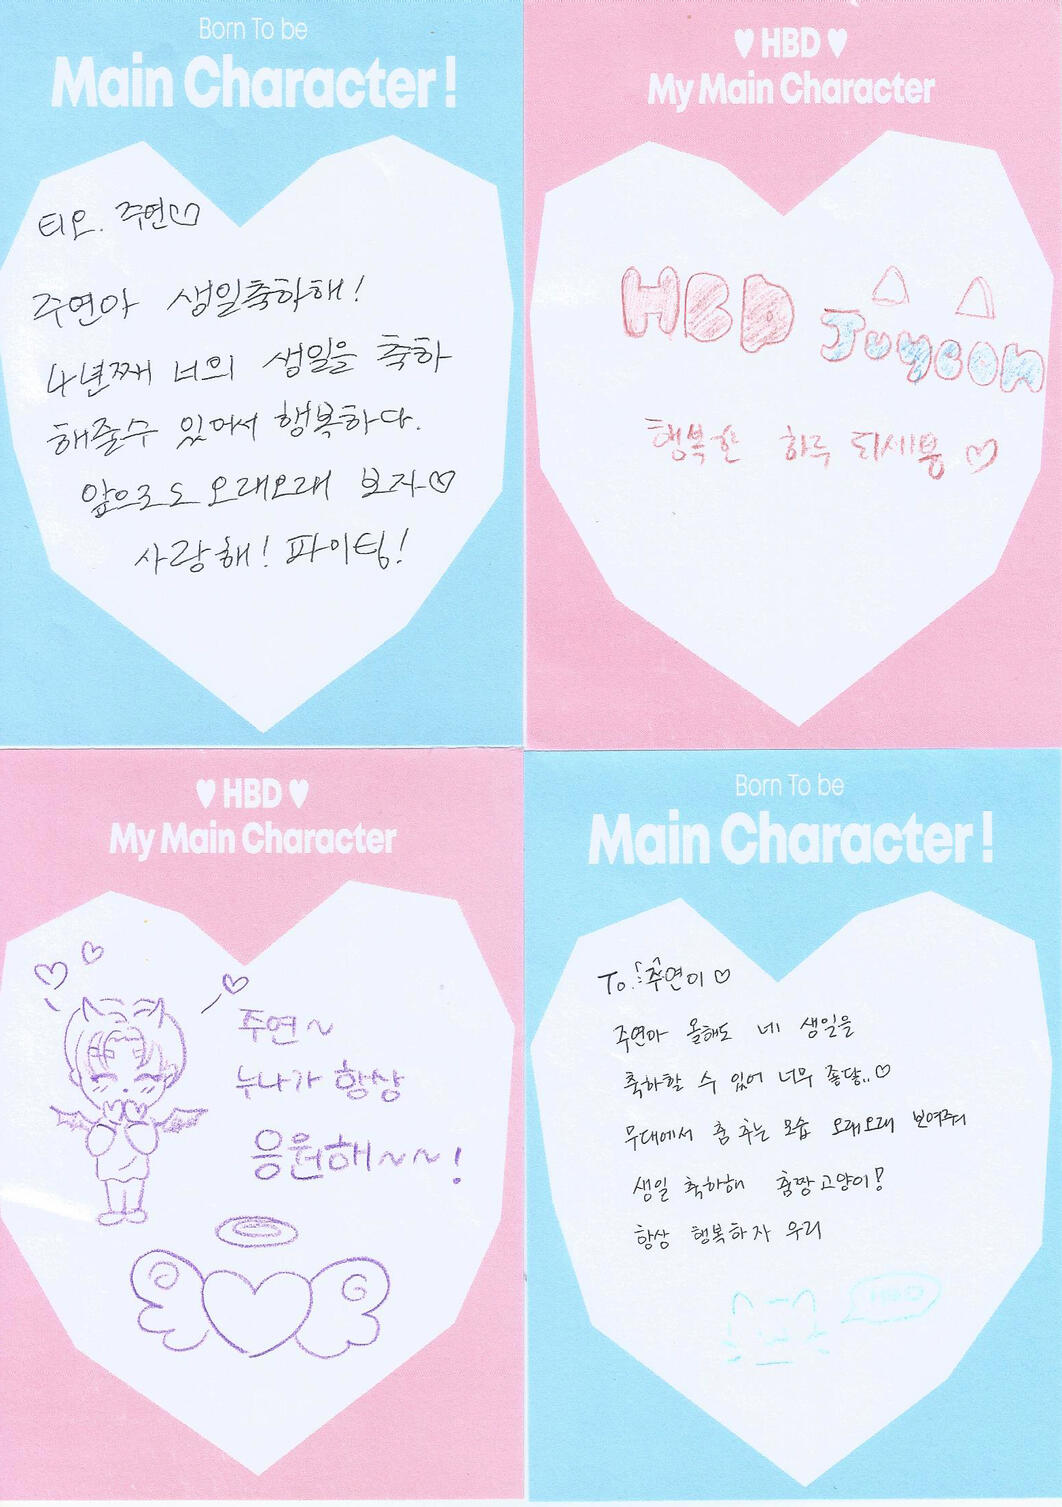 Born To be
Main Character!
티오. 주연♡
주연아 생일축하해!
4년째 너의 생일을 축하
해줄수 있어서 행복하다.
앞으로도 오래오래 보자♡
사랑해! 파이팅!
♥ HBD ♥
My Main Character
HBD Juyeon
행복한 하루 되세용 ♡
♥ HBD ♥
My Main Character
주연~
누나가 항상
응원해~~!
Born To be
Main Character!
To. 주연이 ♡
주연아 올해도 네 생일을
축하할 수 있어 너무 좋당..♡
무대에서 춤 추는 모습 오래오래 보여줘
생일 축하해 춤짱고양이!
항상 행복하자 우리
HBD